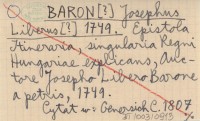 BARON[?] Josephus
Liberus[?] 1749. Epistola
Itineraria, singularia Regni
Hungariae explicans, Auc-
tore Josepho Libero Barone
a petris, 1749.
Cytat w: Genersich C. 1807